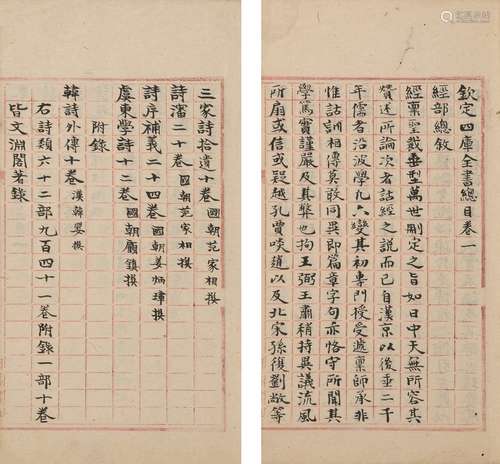 欽定四庫全書總目卷一
經部總敘
經稟聖裁垂型萬世刪定之旨如日中天無所容其
贊述所論次者詁經之說而已自漢京以後垂二千
年儒者沿波學凡六變其初專門授受遞稟師承非
惟詁訓相傳莫敢同異即篇章字句亦恪守所聞其
學篤實謹嚴及其弊也拘王弼王肅稍持異議流風
所扇或信或疑越孔賈啖趙以及北宋孫復劉敞等
三家詩拾遺十卷 國朝范家相撰
詩瀋二十卷 國朝范家相撰
詩序補義二十四卷 國朝姜炳璋撰
虞東學詩十二卷 國朝顧鎮撰
附錄
韓詩外傳十卷 漢韓嬰撰
右詩類六十二部九百四十一卷附錄一部十卷
皆文淵閣著錄